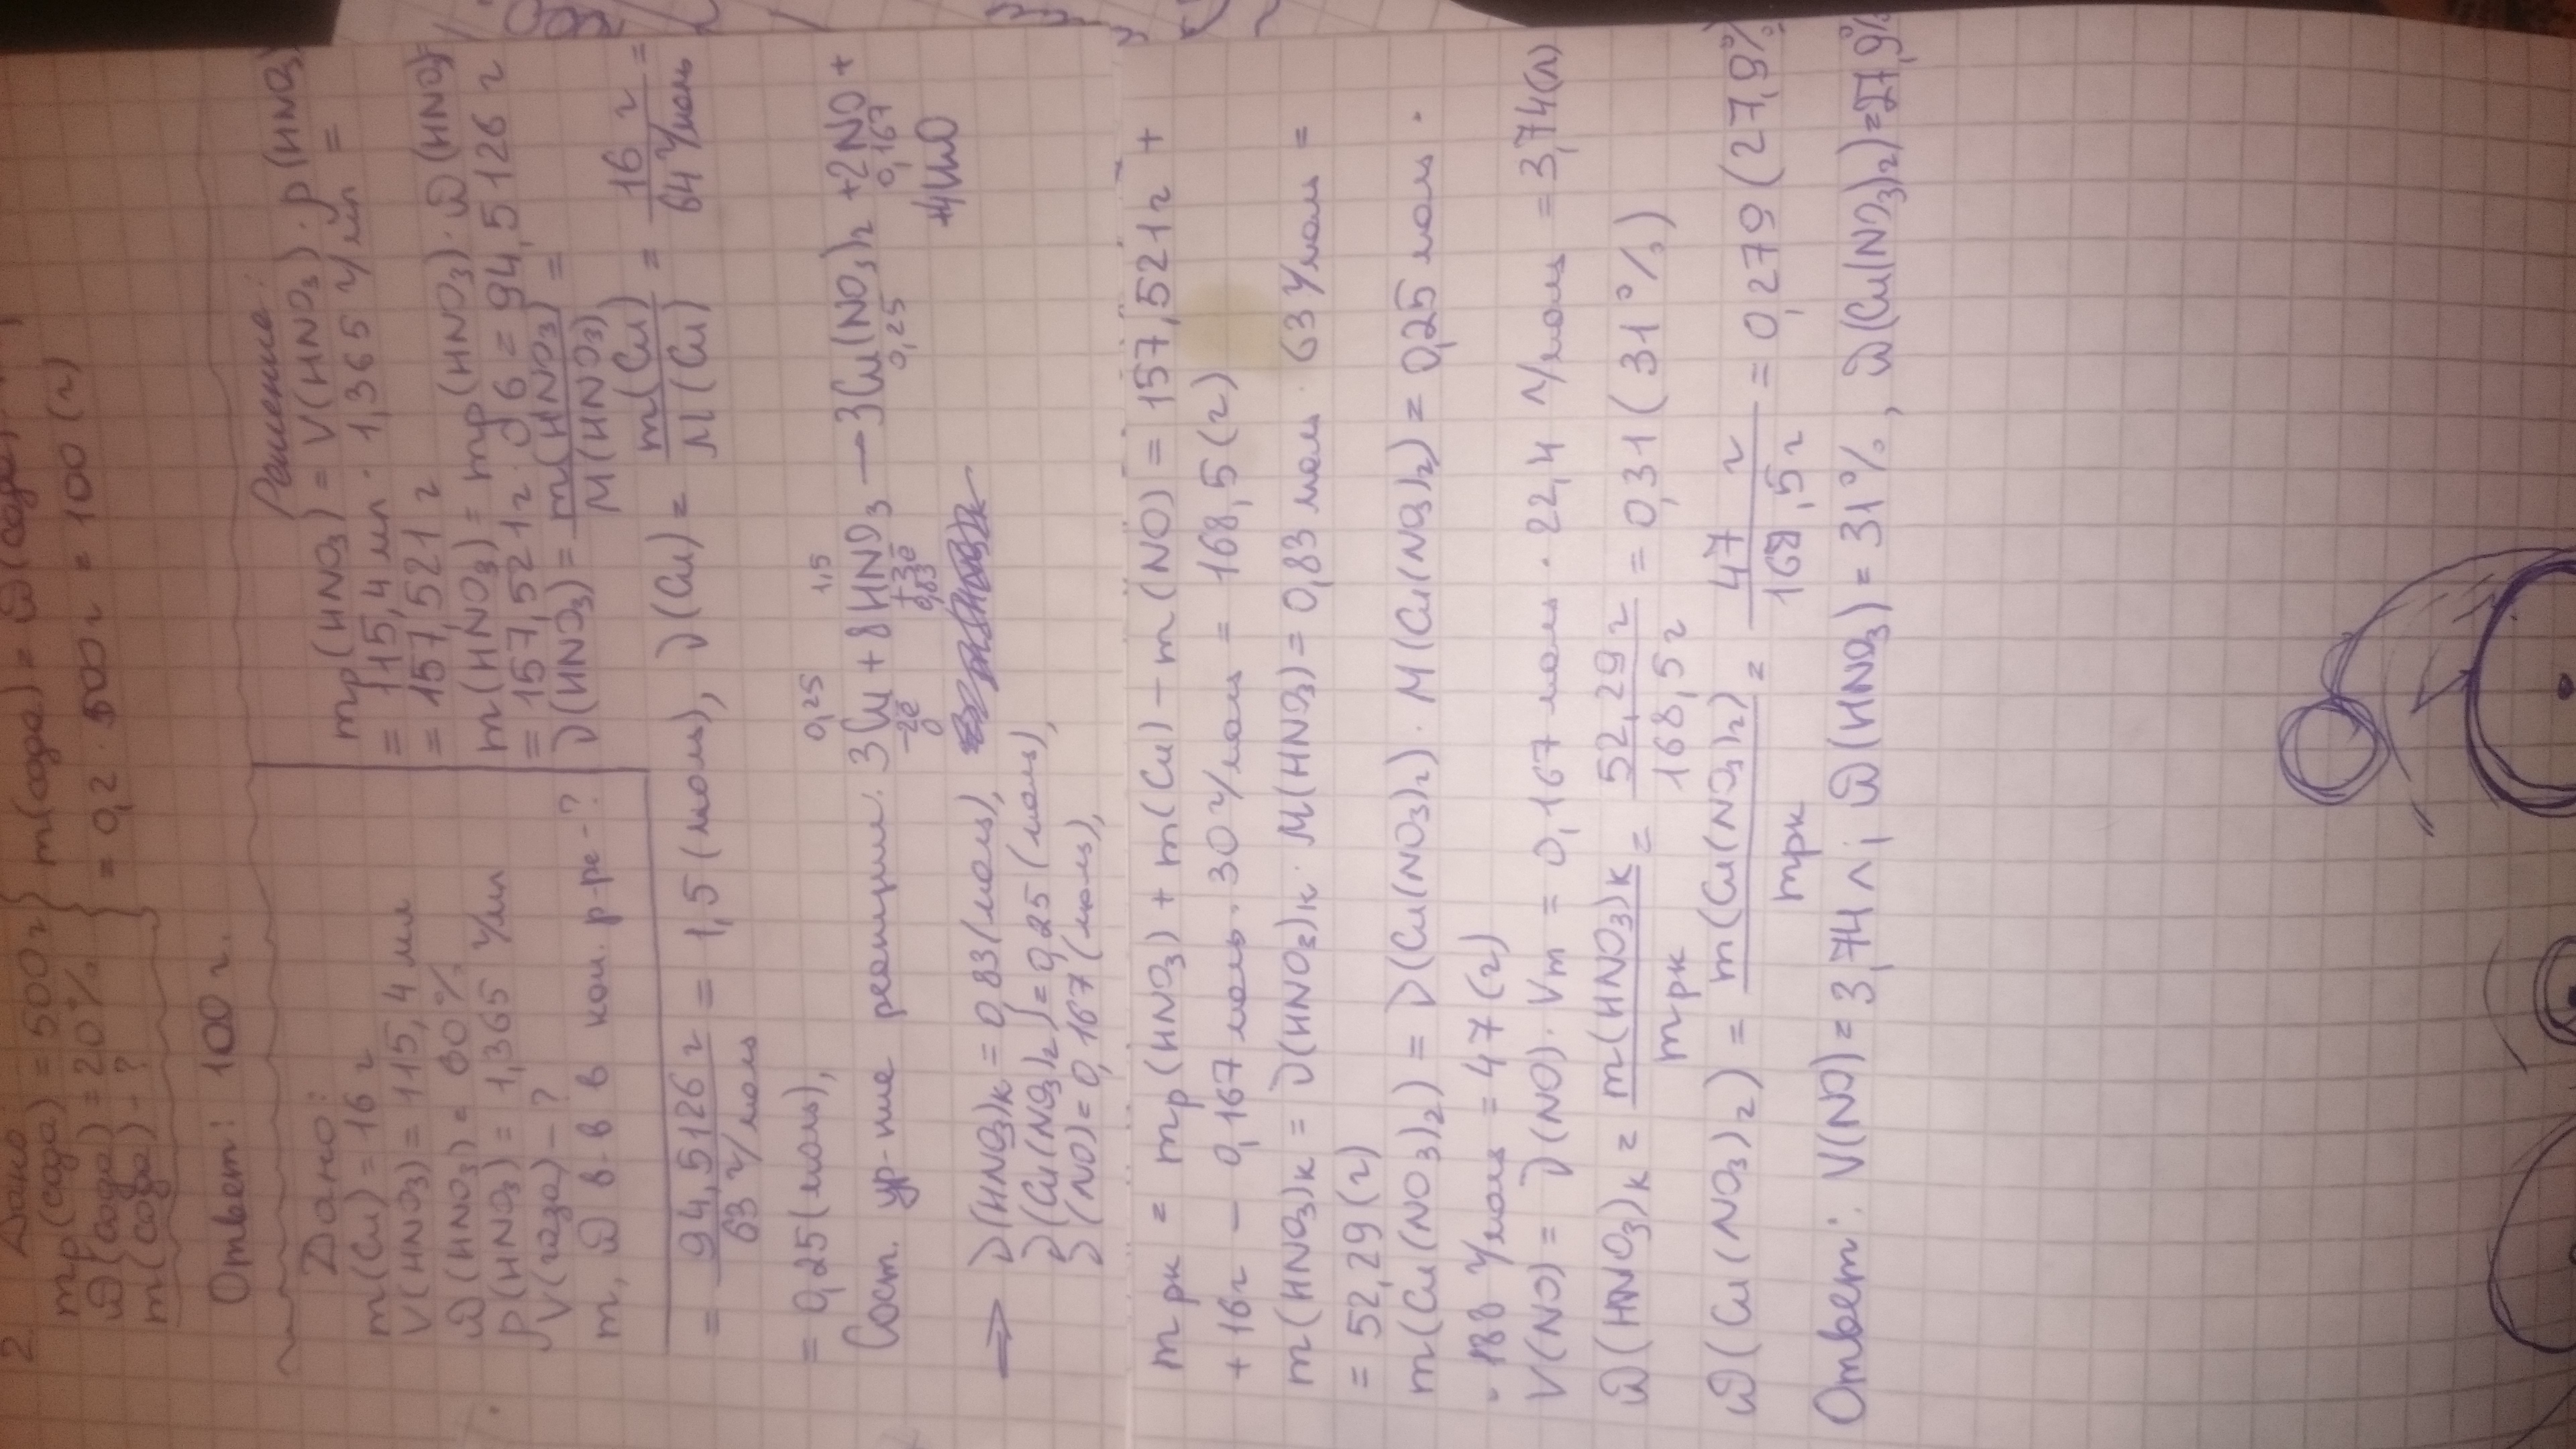 2. Дано
mр(сода) = 500 г } m(сода) = ω(сода)
ω(сода) = 20% } = 0,2 · 500 г = 100 (г)
m(сода) - ?
Ответ: 100 г.
Дано:
m(Cu) = 16 г
V(HNO3) = 115,4 мл
ω(HNO3) = 60%
ρ(HNO3) = 1,365 г/мл
V(газа) - ?
m, ω в-в в кон. р-ре - ?
Решение:
mр(HNO3) = V(HNO3) · ρ(HNO3)
= 115,4 мл · 1,365 г/мл =
= 157,521 г
m(HNO3) = mр(HNO3) · ω(HNO3)
= 157,521 г · 0,6 = 94,5126 г
ν(HNO3) = m(HNO3)/M(HNO3) =
= 94,5126 г/63 г/моль = 1,5 (моль), ν(Cu) = m(Cu)/M(Cu) = 16 г/64 г/моль =
= 0,25 (моль),
0,25 1,5
Сост. ур-ние реакции: 3Cu + 8HNO3 → 3Cu(NO3)2 + 2NO +
-2e̅ +3e̅ 0,25 0,167
0 0,83 +4H2O
⇒ ν(HNO3)к = 0,83 (моль),
ν(Cu(NO3)2) = 0,25 (моль),
ν(NO) = 0,167 (моль),
m рк = mр(HNO3) + m(Cu) - m(NO) = 157,521 г +
+ 16 г - 0,167 моль · 30 г/моль = 168,5 (г)
m(HNO3)к = ν(HNO3)к · M(HNO3) = 0,83 моль · 63 г/моль =
= 52,29 (г)
m(Cu(NO3)2) = ν(Cu(NO3)2) · M(Cu(NO3)2) = 0,25 моль ·
· 188 г/моль = 47 (г)
V(NO) = ν(NO) · Vm = 0,167 моль · 22,4 л/моль = 3,74 (л)
ω(HNO3)к = m(HNO3)к/mрк = 52,29 г/168,5 г = 0,31 (31%)
ω(Cu(NO3)2) = m(Cu(NO3)2)/mрк = 47 г/168,5 г = 0,279 (27,9%)
Ответ: V(NO) = 3,74 л; ω(HNO3) = 31%, ω(Cu(NO3)2) = 27,9%